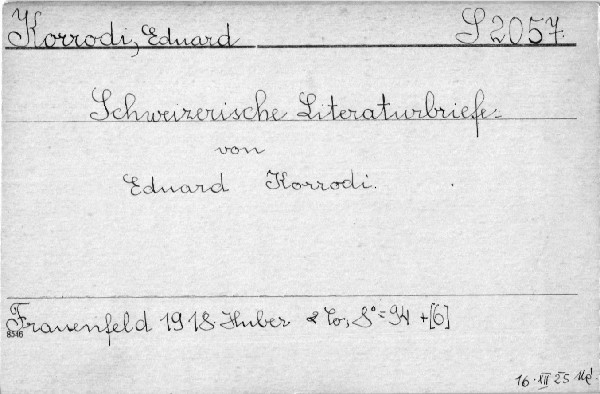 Korrodi, Eduard S 2057.
Schweizerische Literaturbriefe
von
Eduard Korrodi.
Frauenfeld 1918 Huber & Co; 8° = 94 + [6]
8346
16. XII 25